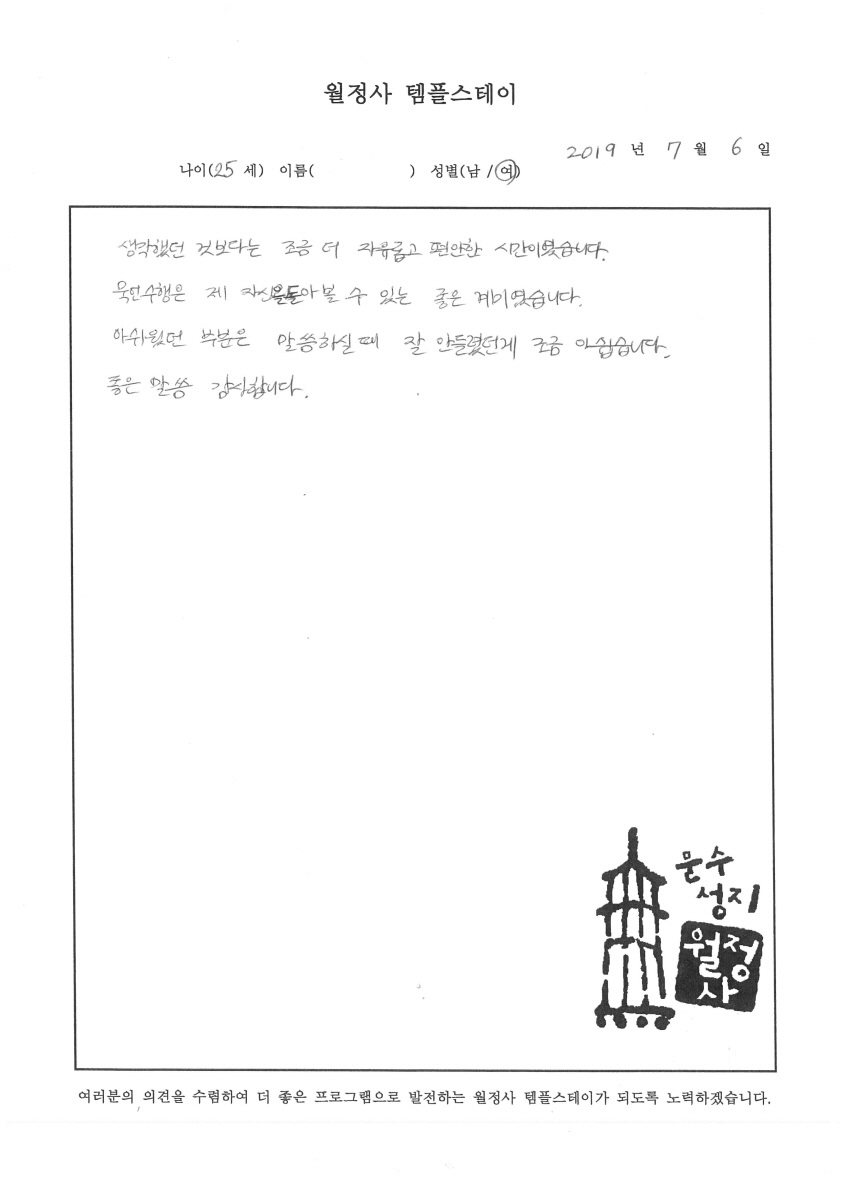 월정사 템플스테이
2019 년 7 월 6 일
나이(25 세) 이름( ) 성별(남 / 여)
생각했던 것보다는 조금 더 자유롭고 편안한 시간이였습니다.
묵언수행은 제 자신을돌아볼 수 있는 좋은 계기였습니다.
아쉬웠던 부분은 말씀하실때 잘 안들렸던게 조금 아쉽습니다.
좋은 말씀 감사합니다.
문수
성지
월정
사
여러분의 의견을 수렴하여 더 좋은 프로그램으로 발전하는 월정사 템플스테이가 되도록 노력하겠습니다.